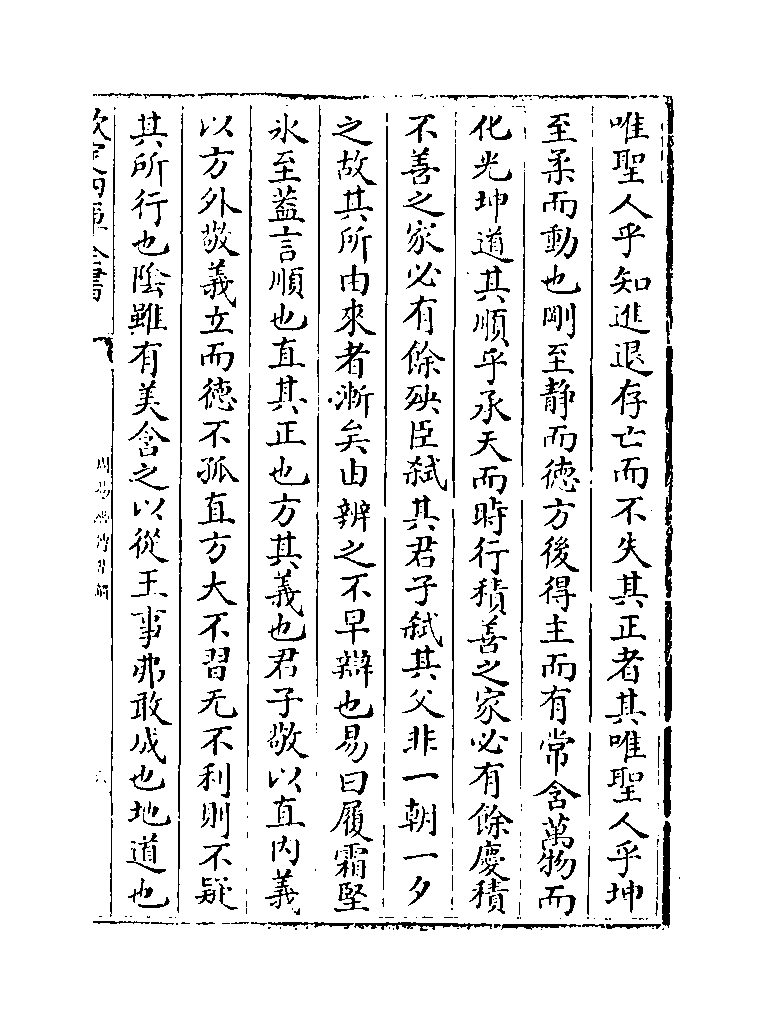 唯聖人乎知進退存亡而不失其正者其唯聖人乎坤
至柔而動也剛至靜而德方後得主而有常含萬物而
化光坤道其順乎承天而時行積善之家必有餘慶積
不善之家必有餘殃臣弑其君子弑其父非一朝一夕
之故其所由來者漸矣由辨之不早辯也易曰履霜堅
氷至葢言順也直其正也方其義也君子敬以直内義
以方外敬義立而德不孤直方大不習无不利則不疑
其所行也陰雖有美含之以從王事弗敢成也地道也
欽定四庫全書